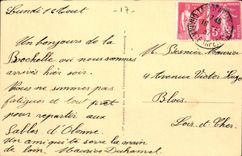 Lundi 1 Aout -17-
Un bonjour de la
Rochelle où nous sommes
arrivés hier soir.
Nous ne sommes pas
fatigués et tout prêt
pour repartir aux
Sables d'Olonne.
Un ami qui te serre la main
de loin. Maurice Duhamel
M. Besnier Maurice
4 Avenue Victor Hugo
Blois
Loir et Cher.